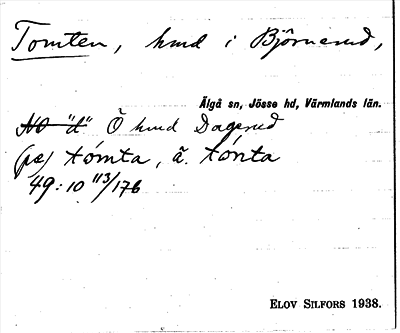 Tomten, hmd i Björnerud,
Älgå sn, Jösse hd, Värmlands län.
NO "d" Ö hmd Dagerud
(ps) tómta, ã. tónta
49:10 113/176
ELOV SILFORS 1938.